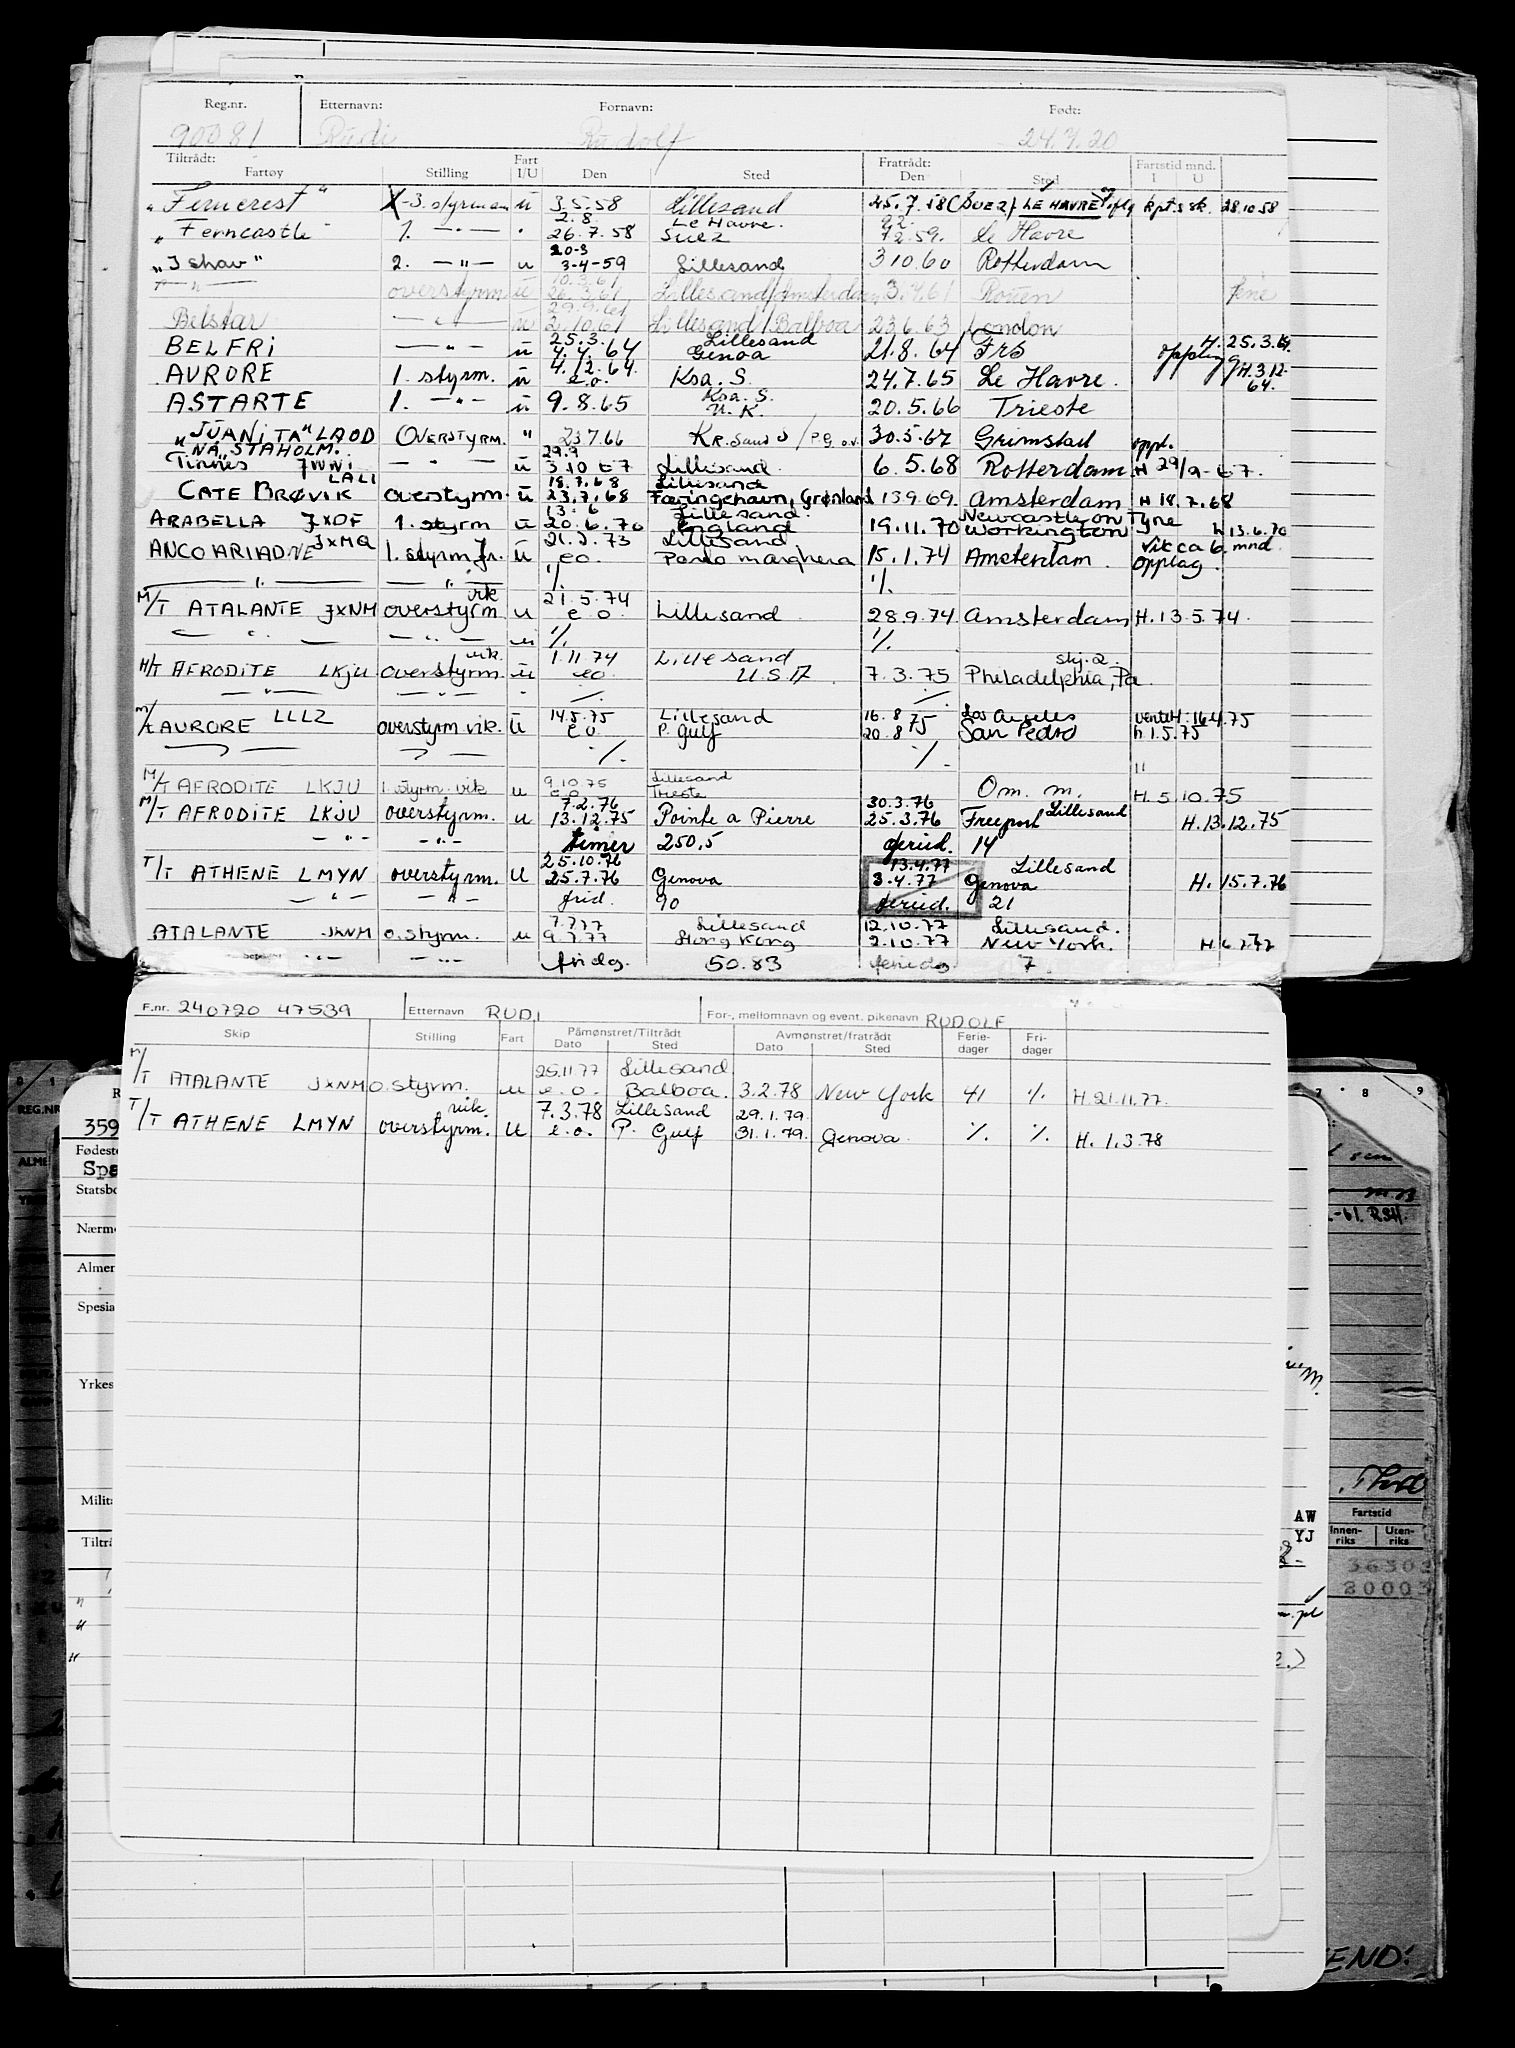 Reg.nr. Etternavn: Fornavn: Født:
90081 Rudi Rudolf 24.7.20
Tiltrådt: Fart Fratrådt: Fartstid mnd.
Fartøy Stilling I/U Den Sted Den Sted I U
"Ferncrest" 3. styrmann u 3.5.58 Lillesand 25.7.58 (SUEZ) LE HAVRE kpt.s sk. 28.10.58
2.8. Le Havre.
"Ferncastle" 1. —"— " 26.7.58 Suez 2.59. Le Havre
20-3
"Ishav" 2. —"— u 3-4-59 Lillesand 3 10.60 Rotterdam
10.3.61
—"— overstyrm u 26.3.61 Lillesand/Amsterdam 3.7.61 Rouen
29.9.61
Belstar —"— u 2.10.61 Lillesand/Balboa 23.6.63 London
25.3. Lillesand H. 25.3.64
BELFRI —"— u 4.4.64 Genoa 21.8.64 Fr6 oppling
4.12.64. H.3.12
AURORE 1. styrm. u e.o. Ksa. S. 24.7.65 Le Havre. 64.
Ksa. S.
ASTARTE 1. —"— u 9.8.65 U.K. 20.5.66 Trieste
"JUANITA" LAOD Overstyrm. " 23.7.66 Kr.sand S / P.G. o.v. 30.5.67 Grimstad oppl.
NÅ "STAHOLM. 29.9
Tinnes JWNI —"— u 3.10 67 Lillesand 6.5.68 Rotterdam H 29/9-67.
LALI 18.7.68 Lillesand
CATE BRØVIK overstyrm. u 23.7.68 Færingehavn, Grønland 13.9.69. Amsterdam H 18.7.68
13.6 Lillesand. Newcastle on Tyne
ARABELLA JXDF 1. styrm u 20.6.70 England 19.11.70 Workington h 13.6.70
JXMQ 21.2.73 Lillesand vik ca 6. mnd.
ANCO ARIADNE 1. styrm Jr. u eo. Porto Marghera 15.1.74 Amsterdam. opplag.
—"— —"— % %
vik 21.5.74
M/T ATALANTE JXNM overstyrm u e.o. Lillesand 28.9.74 Amsterdam H.13.5.74.
—"— —"— u % %
vik. 1.11.74 Lillesand skj.2.
M/T AFRODITE LKJU overstyrm. u eo. U.S.A. 7.3.75 Philadelphia, Pa.
—"— —"— % %
M/T AURORE LLLZ overstyrm vik. u 14.5.75 Lillesand 16.8 75 Los Angeles ventet: 16.4.75
e.o. P. Gulf 20.8 San Pedro h 1.5.75
—"— —"— % % "
9.10.75 Lillesand
M/T AFRODITE LKJU 1. styrm. vik u e.o. Trieste Om. m. H.5.10.75
7.2.76 30.3.76 Lillesand
M/T AFRODITE LKJU overstyrm. u 13.12.75 Pointe a Pierre 25.3.76 Freeport H.13.12.75
—"— —"— timer 250,5 feried. 14
25.10.76 13.4.77 Lillesand
T/T ATHENE LMYN overstyrm. u 25.7.76 Genova 3.4.77 Genova H. 15.7.76
—"— —"— frid. 90 feried. 21
7.7.77 Lillesand 12.10.77 Lillesand.
ATALANTE JXNM o.styrm. u 9.7.77 Hong Kong 2.10.77 New York. H 6.7.77
—"— —"— fridg. 50.83 feriedg. 7
F.nr. 240720 47539 Etternavn RUDI For-, mellomnavn og event. pikenavn RUDOLF
Skip Stilling Fart Påmønstret/Tiltrådt Avmønstret/fratrådt Ferie- Fri-
Dato Sted Dato Sted dager dager
25.11.77 Lillesand
M/T ATALANTE JXNM o.styrm. u e.o. Balboa 3.2.78 New York 41 % H.21.11.77.
vik. 7.3.78 Lillesand 29.1.79.
T/T ATHENE LMYN overstyrm. u e.o. P. Gulf 31.1.79. Genova. % % H. 1.3.78
REG.NR
359
Fødeste
Spa
Statsbo
Nærme
Almer
Spesia
Yrkes
Milita
Tiltrå
-61. RSH.
AW
YJ
Fartstid
Innen-riks Uten-riks
36302
20003
END: